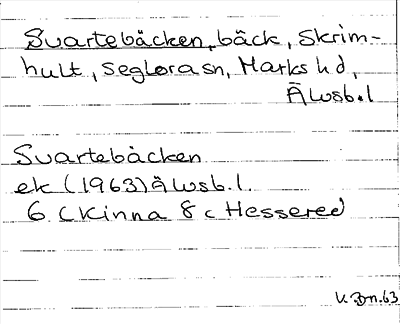 Svartebäcken, bäck, Skrim-
hult, Seglorasn, Marks hd,
Älvsb.l
Svartebäcken
ek (1963) Älvsb.l.
6 Ckinna 8 c Hessered
63